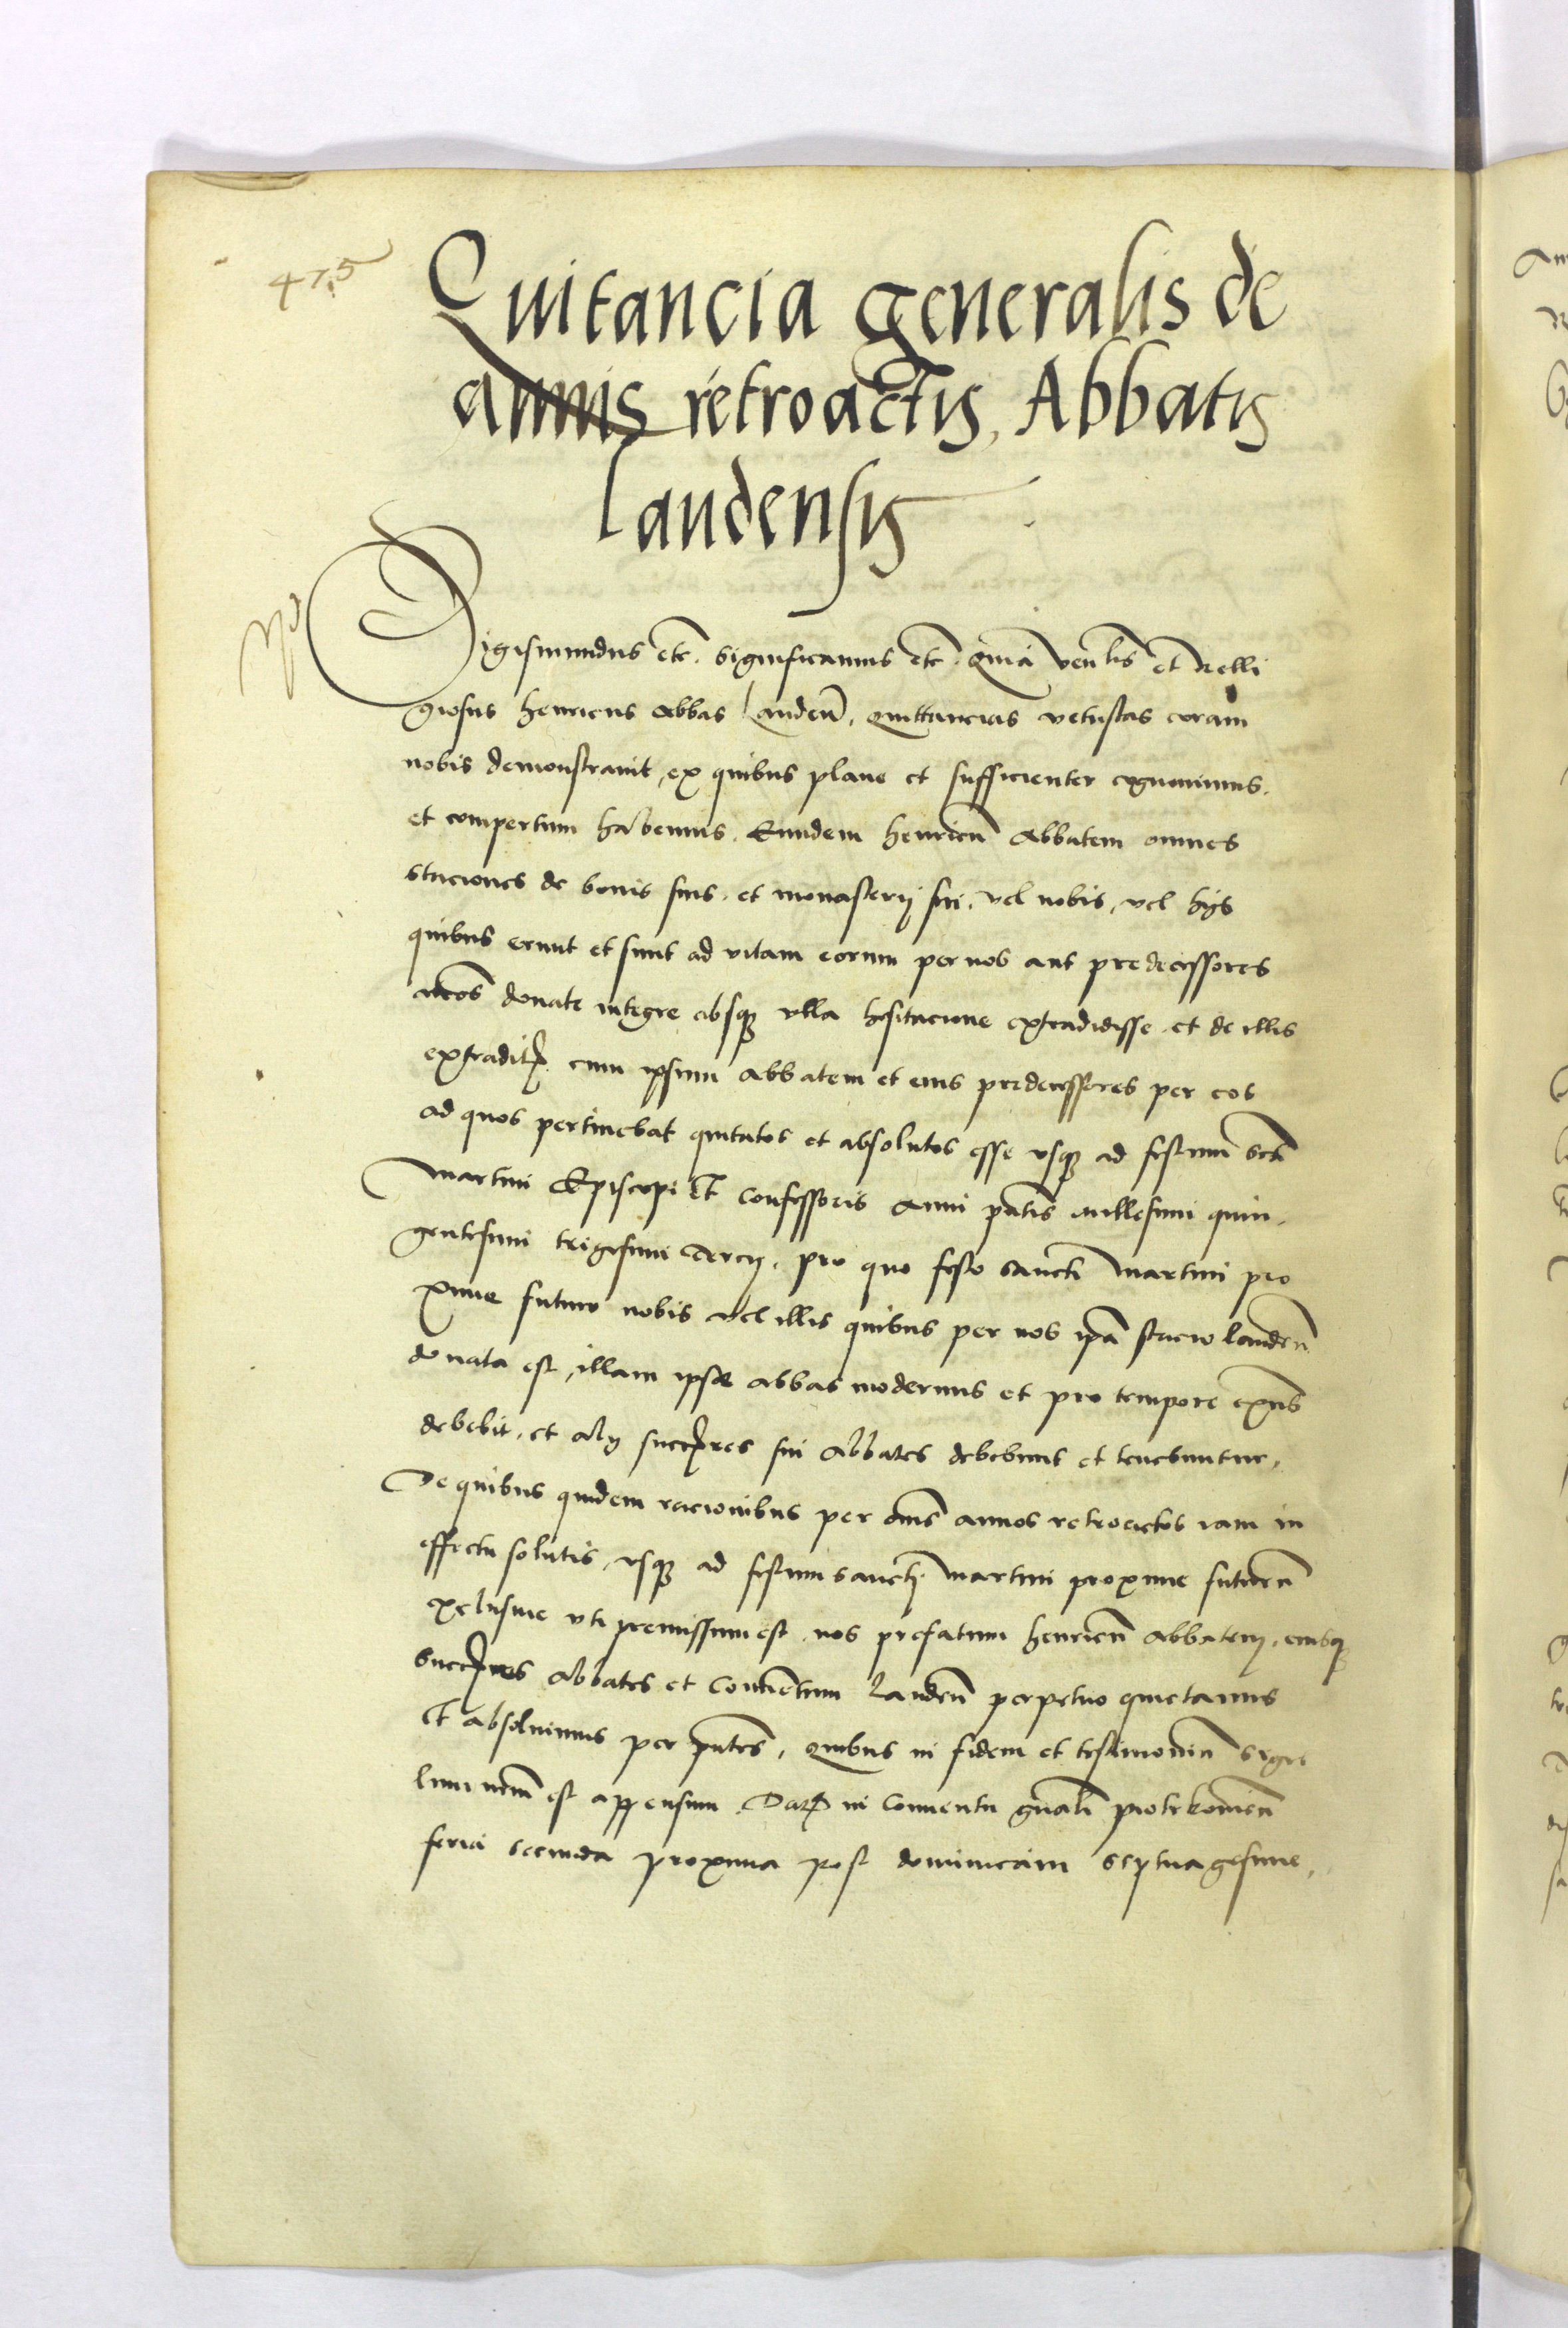 475
Quitancia generalis de
annis retroactis, Abbatis
Landensis
Sigismundus etc. Significamus etc. Quia ven[erabi]lis et Relli
giosus henricus Abbas Landen̄, quittancias vetustas coram
nobis demonstravit, ex quibus plane et sufficienter cognovimus.
et compertum habemus. Eundem henricū Abbatem omnes
staciones de bonis suis. et monasterij sui. vel nobis, vel hijs
quibus erant et sunt ad vitam eorum per nos aut predecessores
n̄ros donate integre absq3 vlla hesitacione extradidisse. et de illis
extradit̄ cum ipsum Abbatem et eius predecessores per eos
ad quos pertinebat quitatos et absolutos esse vsq3 ad festum sc̄ti
Martini Episcopi Et Confessoris Anni pn̄tis millesimi quin
gentesimi trigesimi tercij. pro quo festo Sancti Martini pro
xime futuro nobis vel illis quibus per nos ip̄a stacio landen̄
donata est, illam ipse abbas modernus et pro tempore exn̄s
debebit. et alij succ̄res sui Abbates debebunt et tenebuntur.
De quibus quidem racionibus per om̄s annos retroactos iam in
effectu solutis, vsq3 ad festum sancti Martini proxime futurū
exclusive vti premissum est. nos prefatum henricū Abbatem, eiusq3
succ̄res Abbates et Conventum Landen̄ perpetuo quietamus
Et absolvimus per pn̄tes, Quibus in fidem et testimoniū Sigil
lum nr̄m est appensum. Dat̄ in Conventu gn̄ali piotrkovien̄
feria secunda proxima post dominicam Septuagesime,